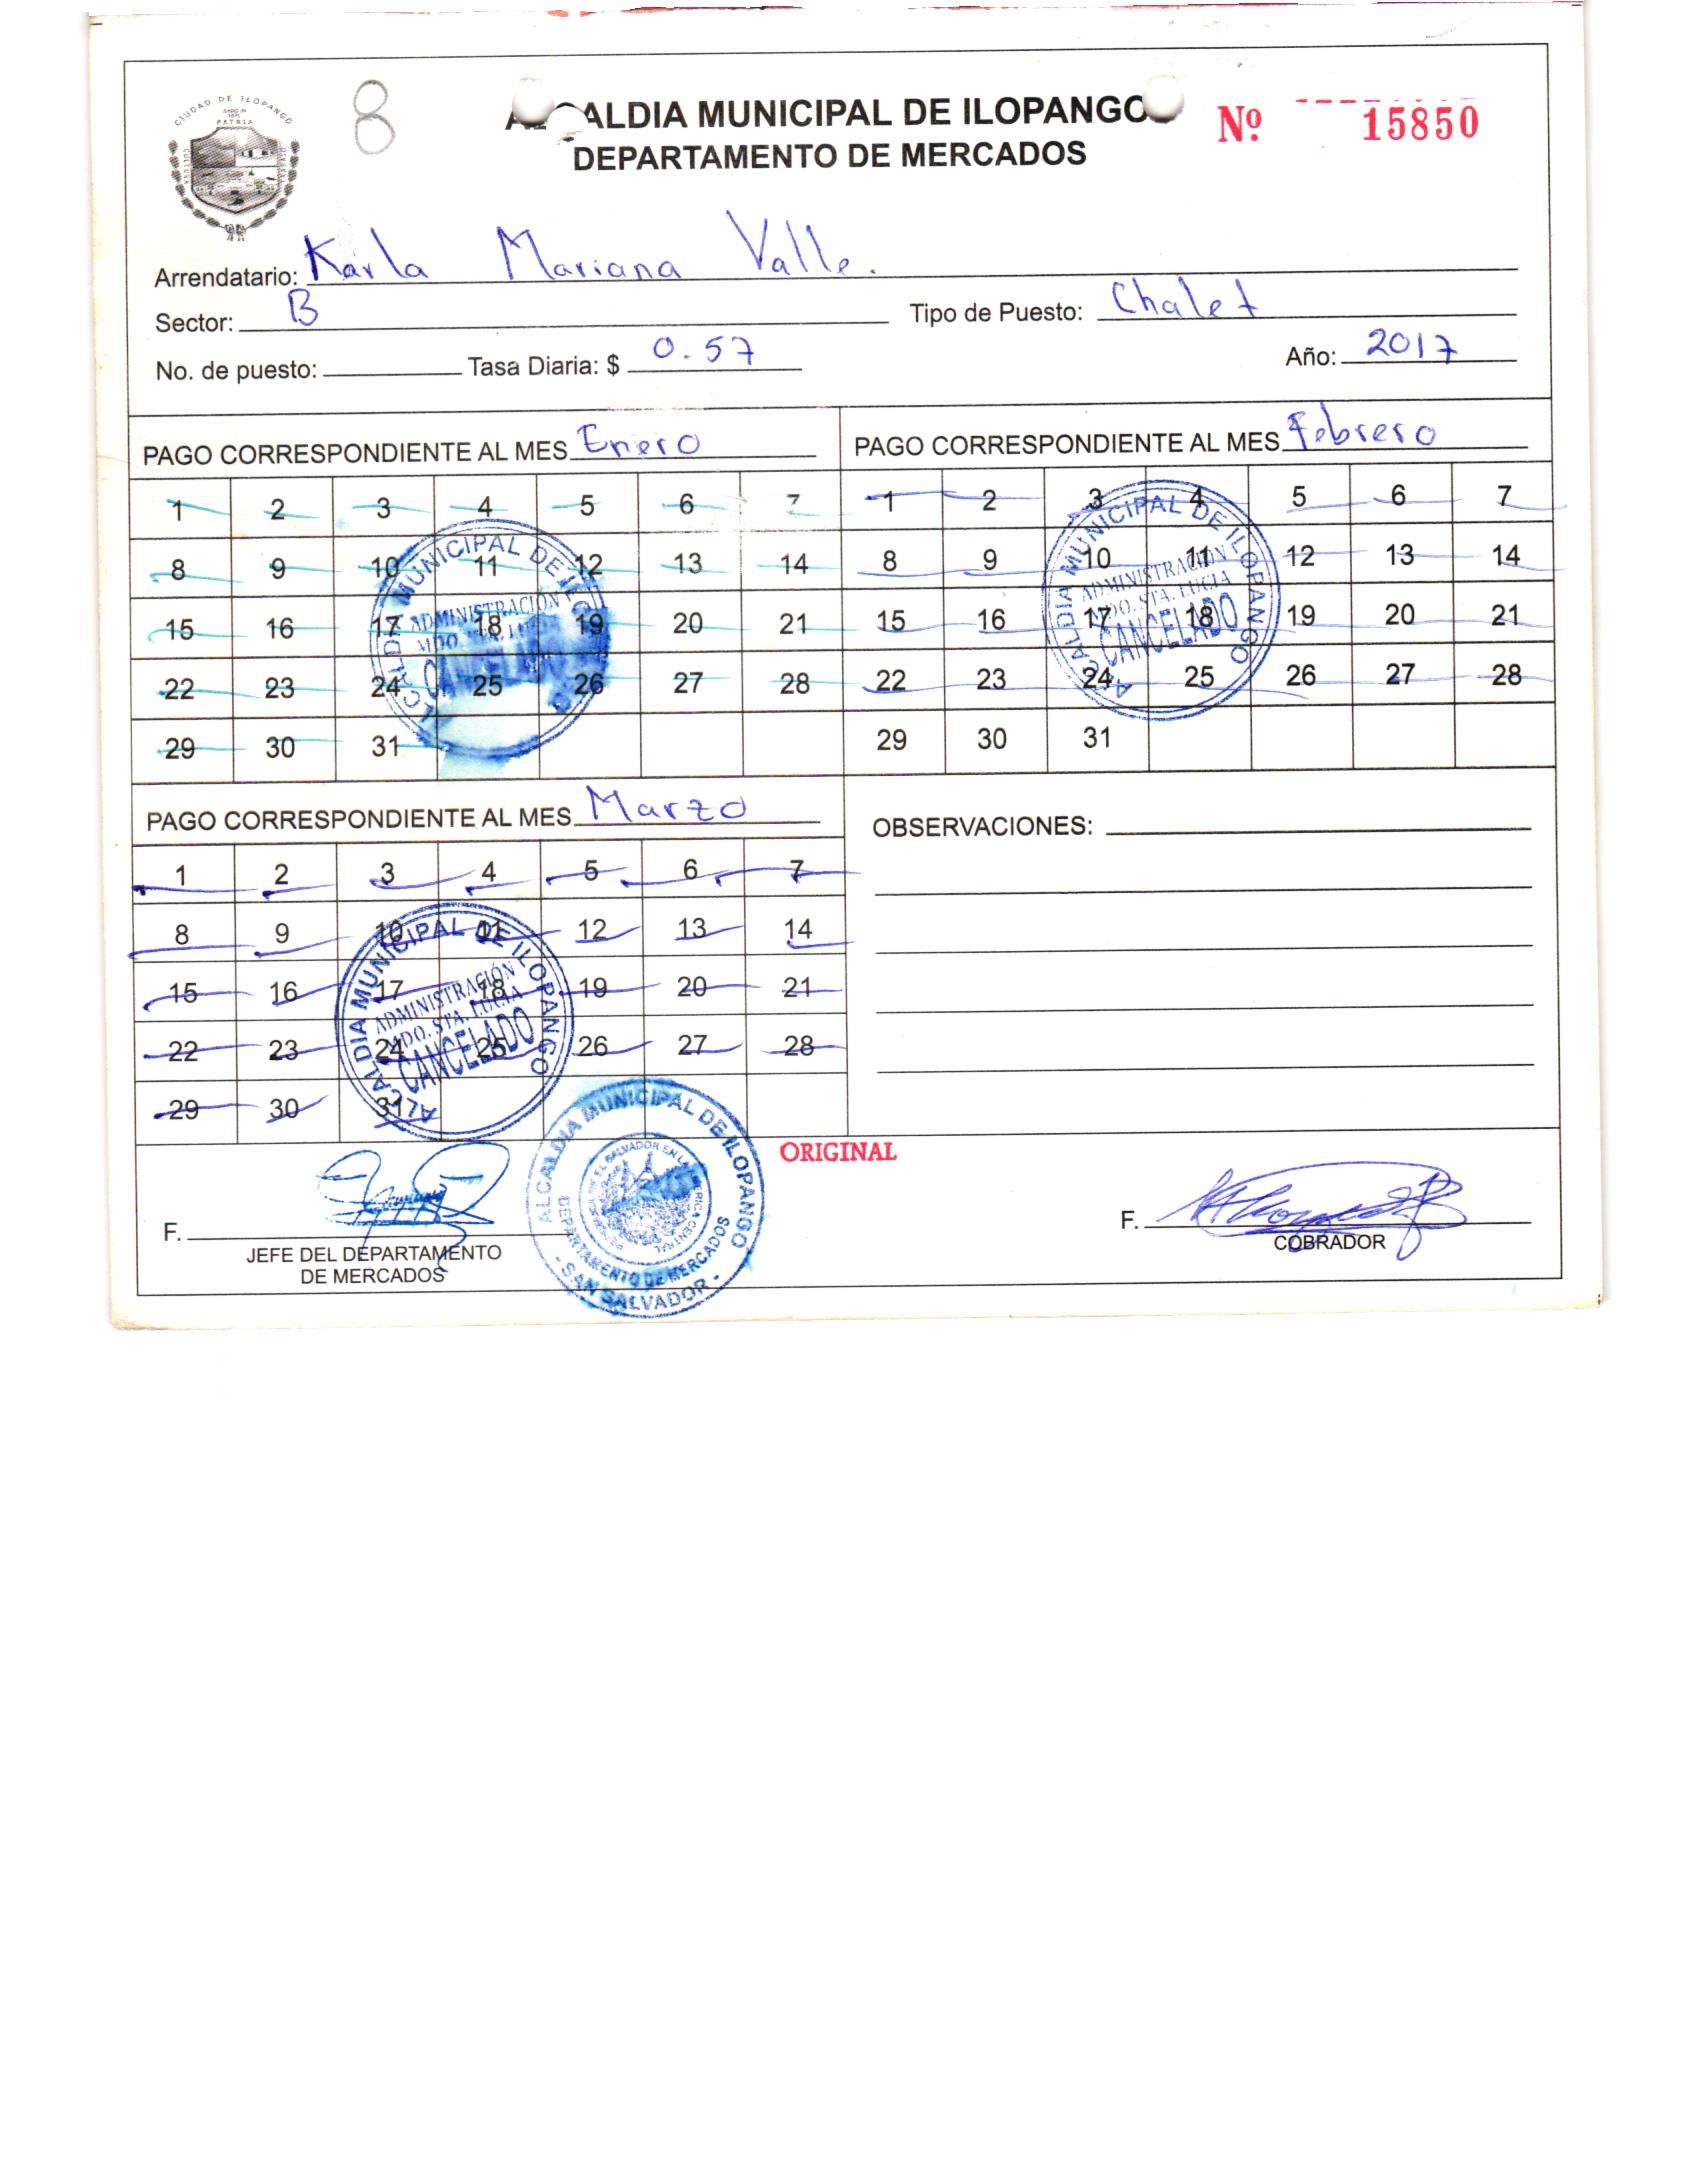 CIUDAD DE ILOPANGO
PATRIA
8
ALCALDIA MUNICIPAL DE ILOPANGO
Nº 15850
DEPARTAMENTO DE MERCADOS
Arrendatario: Karla Mariana Valle.
Sector: B Tipo de Puesto: Chalet
No. de puesto: Tasa Diaria: $ 0.57 Año: 2017
PAGO CORRESPONDIENTE AL MES Enero
1 2 3 4 5 6 7
8 9 10 11 12 13 14
15 16 17 18 19 20 21
22 23 24 25 26 27 28
29 30 31
ALCALDIA MUNICIPAL DE
ADMINISTRACIÓN
PAGO CORRESPONDIENTE AL MES Febrero
1 2 3 4 5 6 7
8 9 10 11 12 13 14
15 16 17 18 19 20 21
22 23 24 25 26 27 28
29 30 31
ALCALDIA MUNICIPAL DE ILOPANGO
ADMINISTRACIÓN
MDO. STA. LUCIA
CANCELADO
PAGO CORRESPONDIENTE AL MES Marzo
1 2 3 4 5 6 7
8 9 10 11 12 13 14
15 16 17 18 19 20 21
22 23 24 25 26 27 28
29 30 31
ALCALDIA MUNICIPAL DE ILOPANGO
ADMINISTRACIÓN
MDO. STA. LUCIA
CANCELADO
OBSERVACIONES:
ORIGINAL
ALCALDIA MUNICIPAL DE ILOPANGO
DEPARTAMENTO DE MERCADOS
- SAN SALVADOR -
F.
JEFE DEL DEPARTAMENTO
DE MERCADOS
F.
COBRADOR